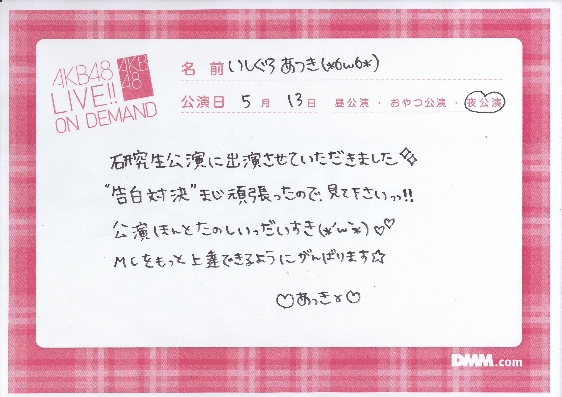 AKB48
LIVE!!
ON DEMAND
AKB
48
名 前 いしぐろ あつき(*6ω6*)
公演日 5 月 13 日 昼公演・おやつ公演・夜公演
研究生公演に出演させていただきました✧
"告白対決"まじ頑張ったので、見て下さいっっ!!
公演ほんとたのしいっだいすき(*´ω`*)♡♡
MCをもっと上達できるようにがんばります☆
♡あっきɤ♡
DMM.com